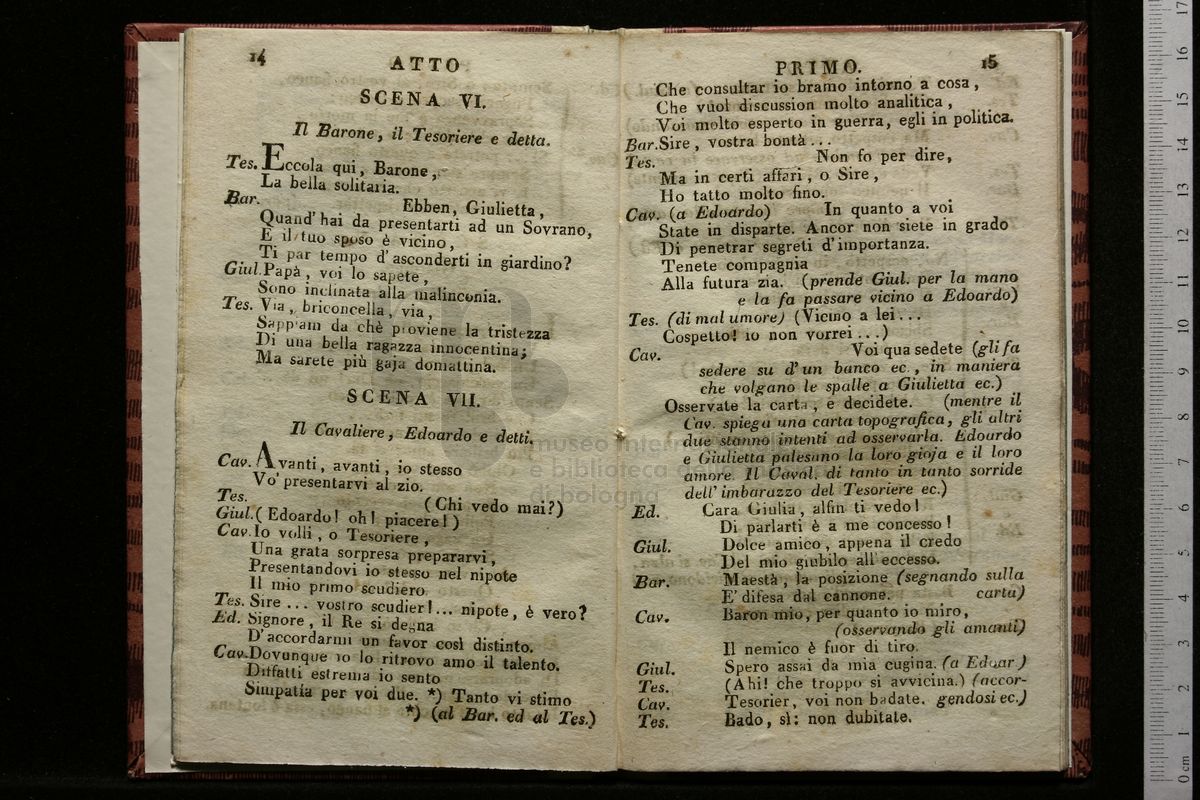 14
ATTO
SCENA VI.
Il Barone, il Tesoriere e detta.
Tes. Eccola qui, Barone,
La bella solitaria.
Bar. Ebben, Giulietta,
Quand' hai da presentarti ad un Sovrano,
E il tuo sposo è vicino,
Ti par tempo d'asconderti in giardino?
Giul. Papà, voi lo sapete,
Sono inclinata alla malinconia.
Tes. Via, briconcella, via,
Sappiam da chè proviene la tristezza
Di una bella ragazza innocentina;
Ma sarete più gaja domattina.
SCENA VII.
Il Cavaliere, Edoardo e detti.
Cav. Avanti, avanti, io stesso
Vo' presentarvi al zio.
Tes. (Chi vedo mai?)
Giul. (Edoardo! oh! piacere!)
Cav. Io volli, o Tesoriere,
Una grata sorpresa prepararvi,
Presentandovi io stesso nel nipote
Il mio primo scudiero
Tes. Sire ... vostro scudier!... nipote, è vero?
Ed. Signore, il Re si degna
D'accordarmi un favor così distinto.
Cav. Dovunque io lo ritrovo amo il talento.
Diffatti estrema io sento
Simpatia per voi due. *) Tanto vi stimo
*) (al Bar. ed al Tes.)
PRIMO.
15
Che consultar io bramo intorno a cosa,
Che vuol discussion molto analitica,
Voi molto esperto in guerra, egli in politica.
Bar. Sire, vostra bontà...
Tes. Non fo per dire,
Ma in certi affari, o Sire,
Ho tatto molto fino.
Cav. (a Edoardo) In quanto a voi
State in disparte. Ancor non siete in grado
Di penetrar segreti d'importanza.
Tenete compagnia
Alla futura zia. (prende Giul. per la mano
e la fa passare vicino a Edoardo)
Tes. (di mal umore) (Vicino a lei...
Cospetto! io non vorrei...)
Cav. Voi qua sedete (gli fa
sedere su d'un banco ec., in maniera
che volgano le spalle a Giulietta ec.)
Osservate la carta, e decidete. (mentre il
Cav. spiega una carta topografica, gli altri
due stanno intenti ad osservarla. Edoardo
e Giulietta palesano la loro gioja e il loro
amore Il Caval. di tanto in tanto sorride
dell'imbarazzo del Tesoriere ec.)
Ed. Cara Giulia, alfin ti vedo!
Di parlarti è a me concesso!
Giul. Dolce amico, appena il credo
Del mio giubilo all'eccesso.
Bar. Maestà, la posizione (segnando sulla
E' difesa dal cannone. carta)
Cav. Baron mio, per quanto io miro,
(osservando gli amanti)
Il nemico è fuor di tiro.
Giul. Spero assai da mia cugina. (a Edoar.)
Tes. (Ahi! che troppo si avvicina.) (accor-
Cav. Tesorier, voi non badate. gendosi ec.)
Tes. Bado, sì: non dubitate.
e biblioteca della
di bologna
0 cm 1 2 3 4 5 6 7 8 9 10 11 12 13 14 15 16 17